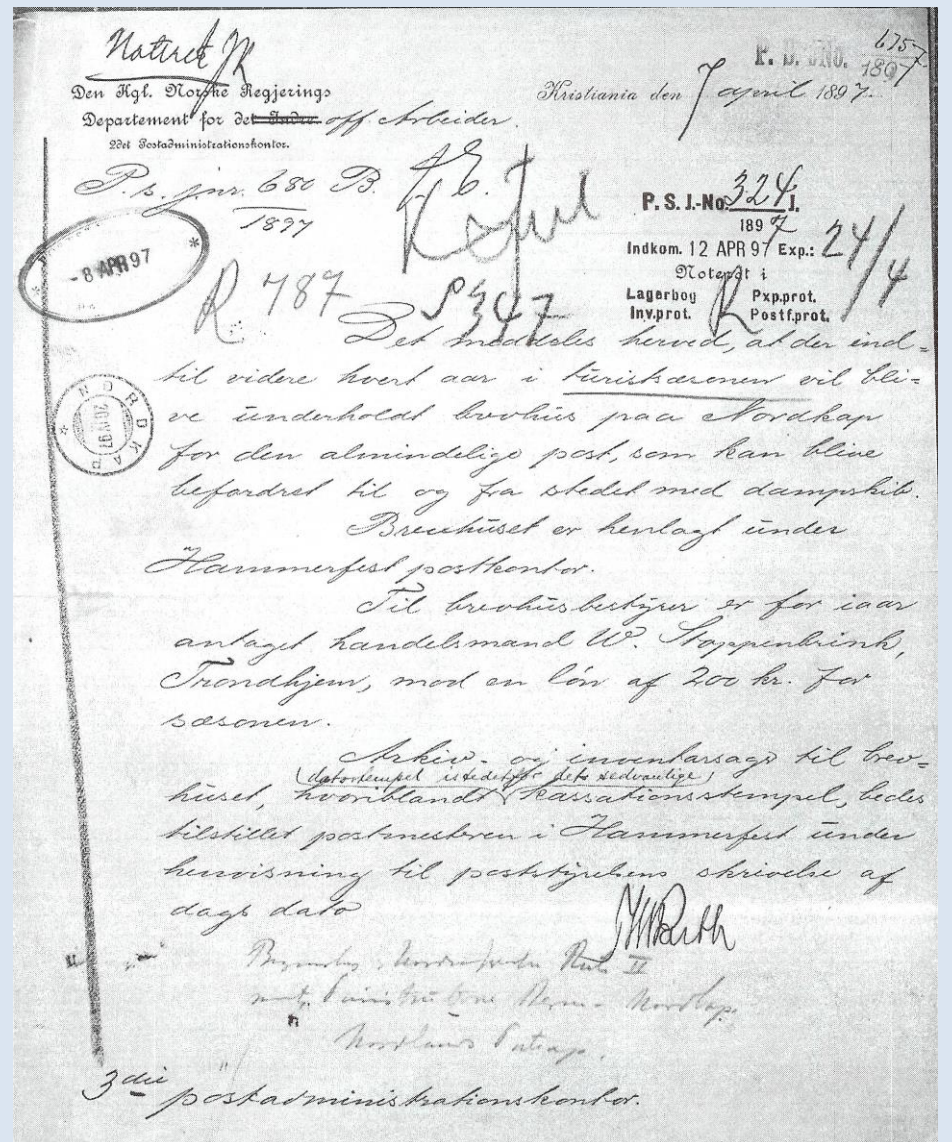 Noteret
P. D. JNo. 6757
1897
Den Kgl. Norske Regjerings
Departement for det Indre off Arbeider.
2det Postadministrationskontor.
Kristiania den 7 april 1897.
P. s. jnr. 680 B.
1897
- 8 APR 97
P. S. J.-No. 324 I.
1897
Indkom. 12 APR 97 Exp.: 24/4
Noteret i
Lagerbog Pxp.prot.
Inv.prot. Postf.prot.
R 787
347
Det meddeles herved, at der ind=
til videre hvert aar i turistsæsonen vil bli=
ve underholdt brevhus paa Nordkap
for den almindelige post, som kan blive
befordret til og fra stedet med dampskib.
NORDKAP
Brevhuset er henlagt under
Hammerfest postkontor.
Til brevhusbestyrer er for iaar
antaget handelsmand W. Stoppenbrink,
Trondhjem, mod en løn af 200 kr. for
sæsonen.
Arkiv- og inventarsager til brev=
(datostempel istedetfor dets sedvanlige)
huset, hvoriblandt kassationsstempel, bedes
tilstillet postmesteren i Hammerfest under
henvisning til poststyrelsens skrivelse af
dags dato
Nordkap.
Nordlands
3die postadministrationskontor.